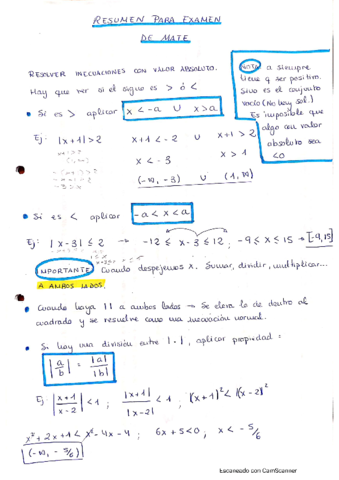 RESUMEN PARA EXAMEN
DE MATE
RESOLVER INECUACIONES CON VALOR ABSOLUTO.
Hay que ver si el signo es > ó <
NOTA a siempre
tiene q ser positivo.
Sino es el conjunto
vacío (No hay sol.)
Es imposible que
algo con valor
absoluto sea
<0
• Si es > aplicar x < -a ∪ x > a
Ej: |x+1| > 2 x+1 < -2 ∪ x+1 > 2
x < -3 x > 1
(-∞, -3) ∪ (1, ∞)
• Si es < aplicar -a < x < a
Ej: |x-3| ≤ 2 → -12 ≤ x-3 ≤ 12; -9 ≤ x ≤ 15 → [-9, 15]
IMPORTANTE: Cuando despejemos x. Sumar, dividir, multiplicar...
A AMBOS LADOS.
• Cuando haya || a ambos lados → Se eleva lo de dentro al
cuadrado y se resuelve como una inecuación normal.
• Si hay una división entre |·|, aplicar propiedad:
|a/b| = |a|/|b|
Ej: |x+1/x-2| < 1; |x+1|/|x-2| < 1; |(x+1)² < |(x-2)²
x²+2x+1 < x²-4x-4; 6x+5<0; x < -5/6
(-∞, -5/6)
Escaneado con CamScanner